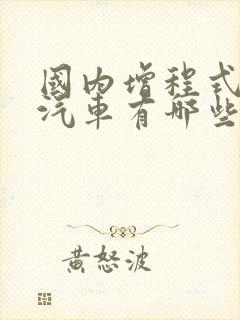 國内增程式
汽車有哪些
黄怒波